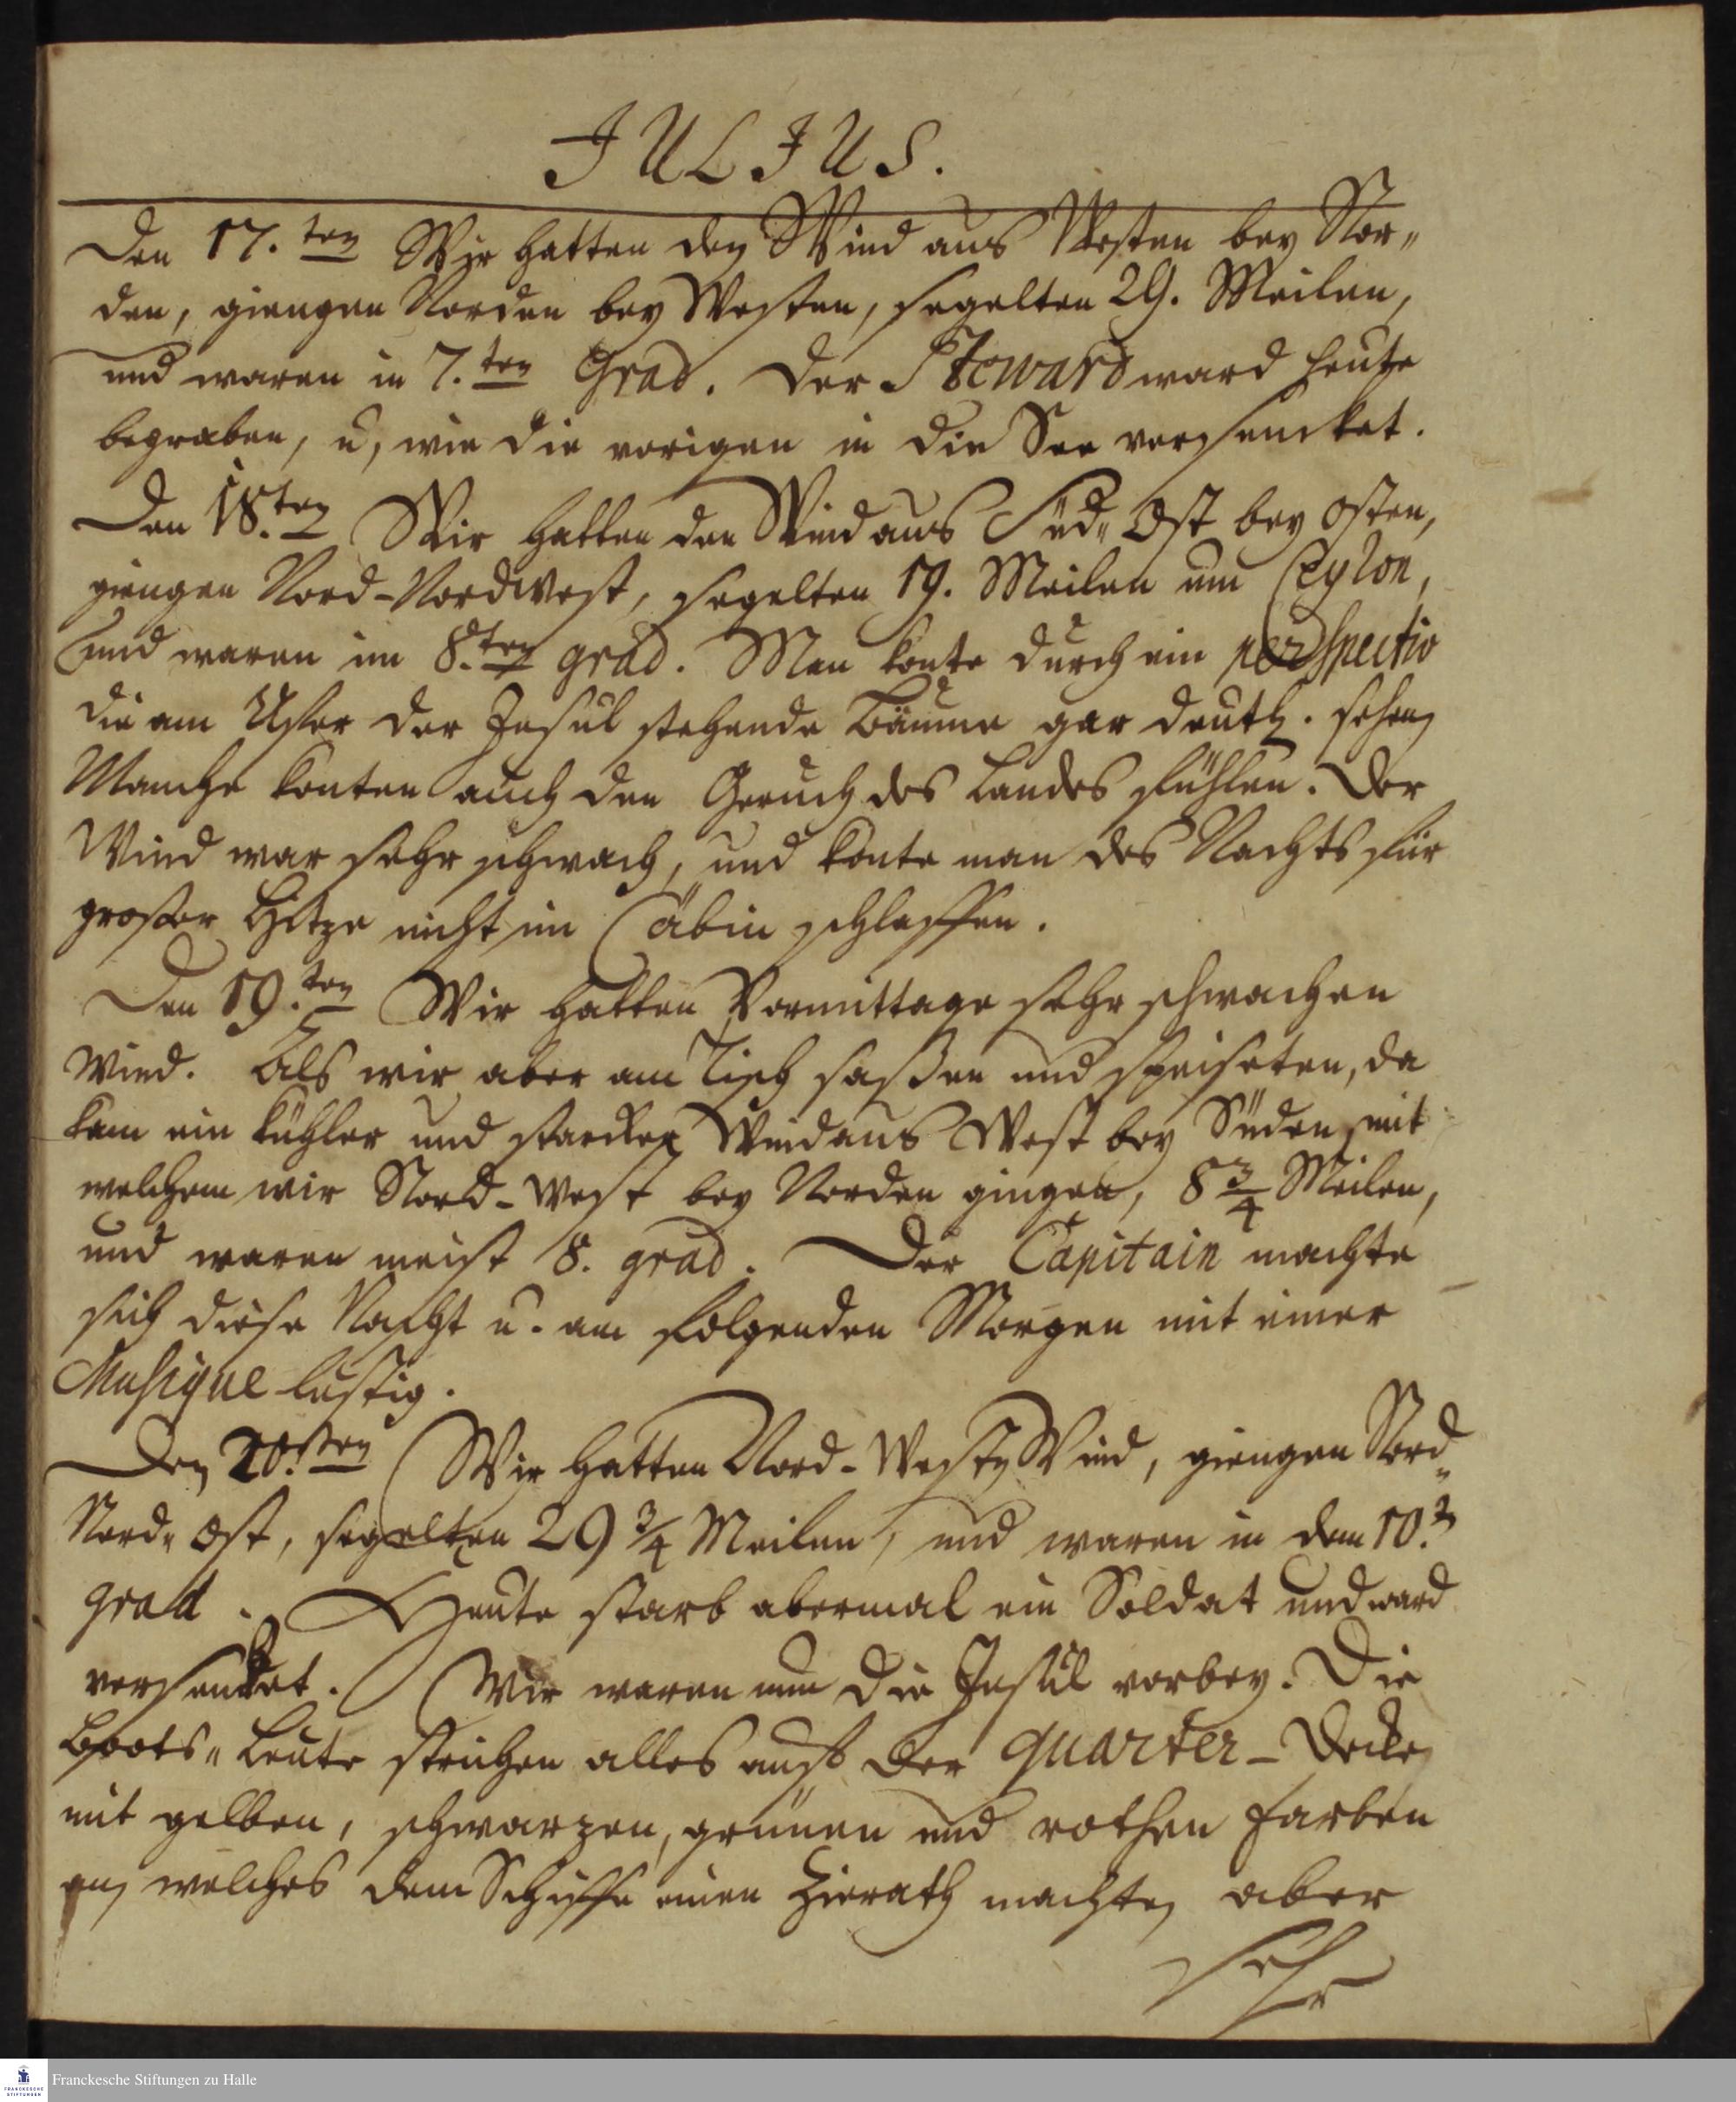 JULIUS.
Den 17.ten Wir hatten den Wind aus Westen bey Nor„
den, giengen Norden bey Westen, segelten 29. Meilen,
und waren in 7.ten Grad. Der Steward ward heute
begraben, u, wie die vorigen in die See versencket.
Den 18.ten Wir hatten den Wind aus Süd„Ost bey Osten,
giengen Nord-Nordwest, segelten 19. Meilen um Ceylon,
und waren im 8.ten grad. Man konte durch ein perspectiv
die am Ufer der Insul stehende Bäume gar deutl. sehen
Manche konten auch den Geruch des Landes fühlen. Der
Wind war sehr schwach, und konte man des Nachts für
großer Hitze nicht im Cäbin schlaffen.
Den 19.ten Wir hatten Vormittage sehr schwachen
Wind. Als wir aber am Tisch saßen und speiseten, da
kam ein kühler und starcker Wind aus West bey Süden, mit
welchem wir Nord-West bey Norden gingen, 8 3/4 Meilen,
und waren meist 8. grad. Der Capitain machte
sich diese Nacht u. am folgenden Morgen mit einer
Musique lustig.
Den 20.sten Wir hatten Nord-Westen Wind, giengen Nord„
Nord„Ost, segelten 29 3/4 Meilen, und waren in dem 10.
grad. Heute starb abermal ein Soldat und ward
versencket. Wir waren nun die Insul vorbey. Die
Boots„Leute strichen alles auf der quarter-Decke
mit gelben, schwarzen, grünen und rothen Farben
an, welches dem Schiffe einen Zierath machte, aber
sehr
Franckesche Stiftungen zu Halle
FRANCKESCHE
STIFTUNGEN